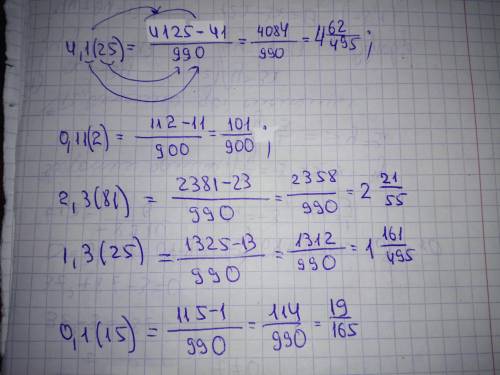 4,1(25) = (4125-41)/990 = 4084/990 = 4 62/495;
0,11(2) = (112-11)/900 = 101/900;
2,3(81) = (2381-23)/990 = 2358/990 = 2 21/55
1,3(25) = (1325-13)/990 = 1312/990 = 1 161/495
0,1(15) = (115-1)/990 = 114/990 = 19/165